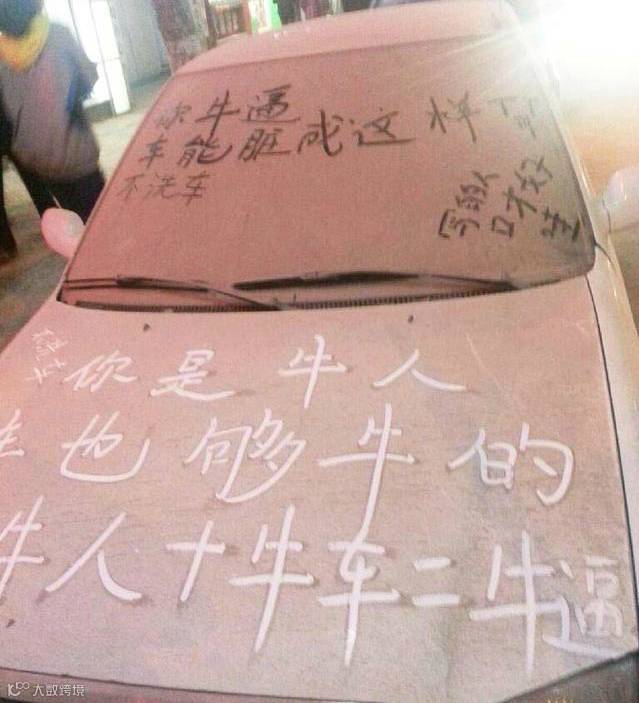 你牛逼
车能脏成这样
不洗车
写的人
口才好
你是牛人
也够牛的
牛人+牛车=牛逼
大数跨境